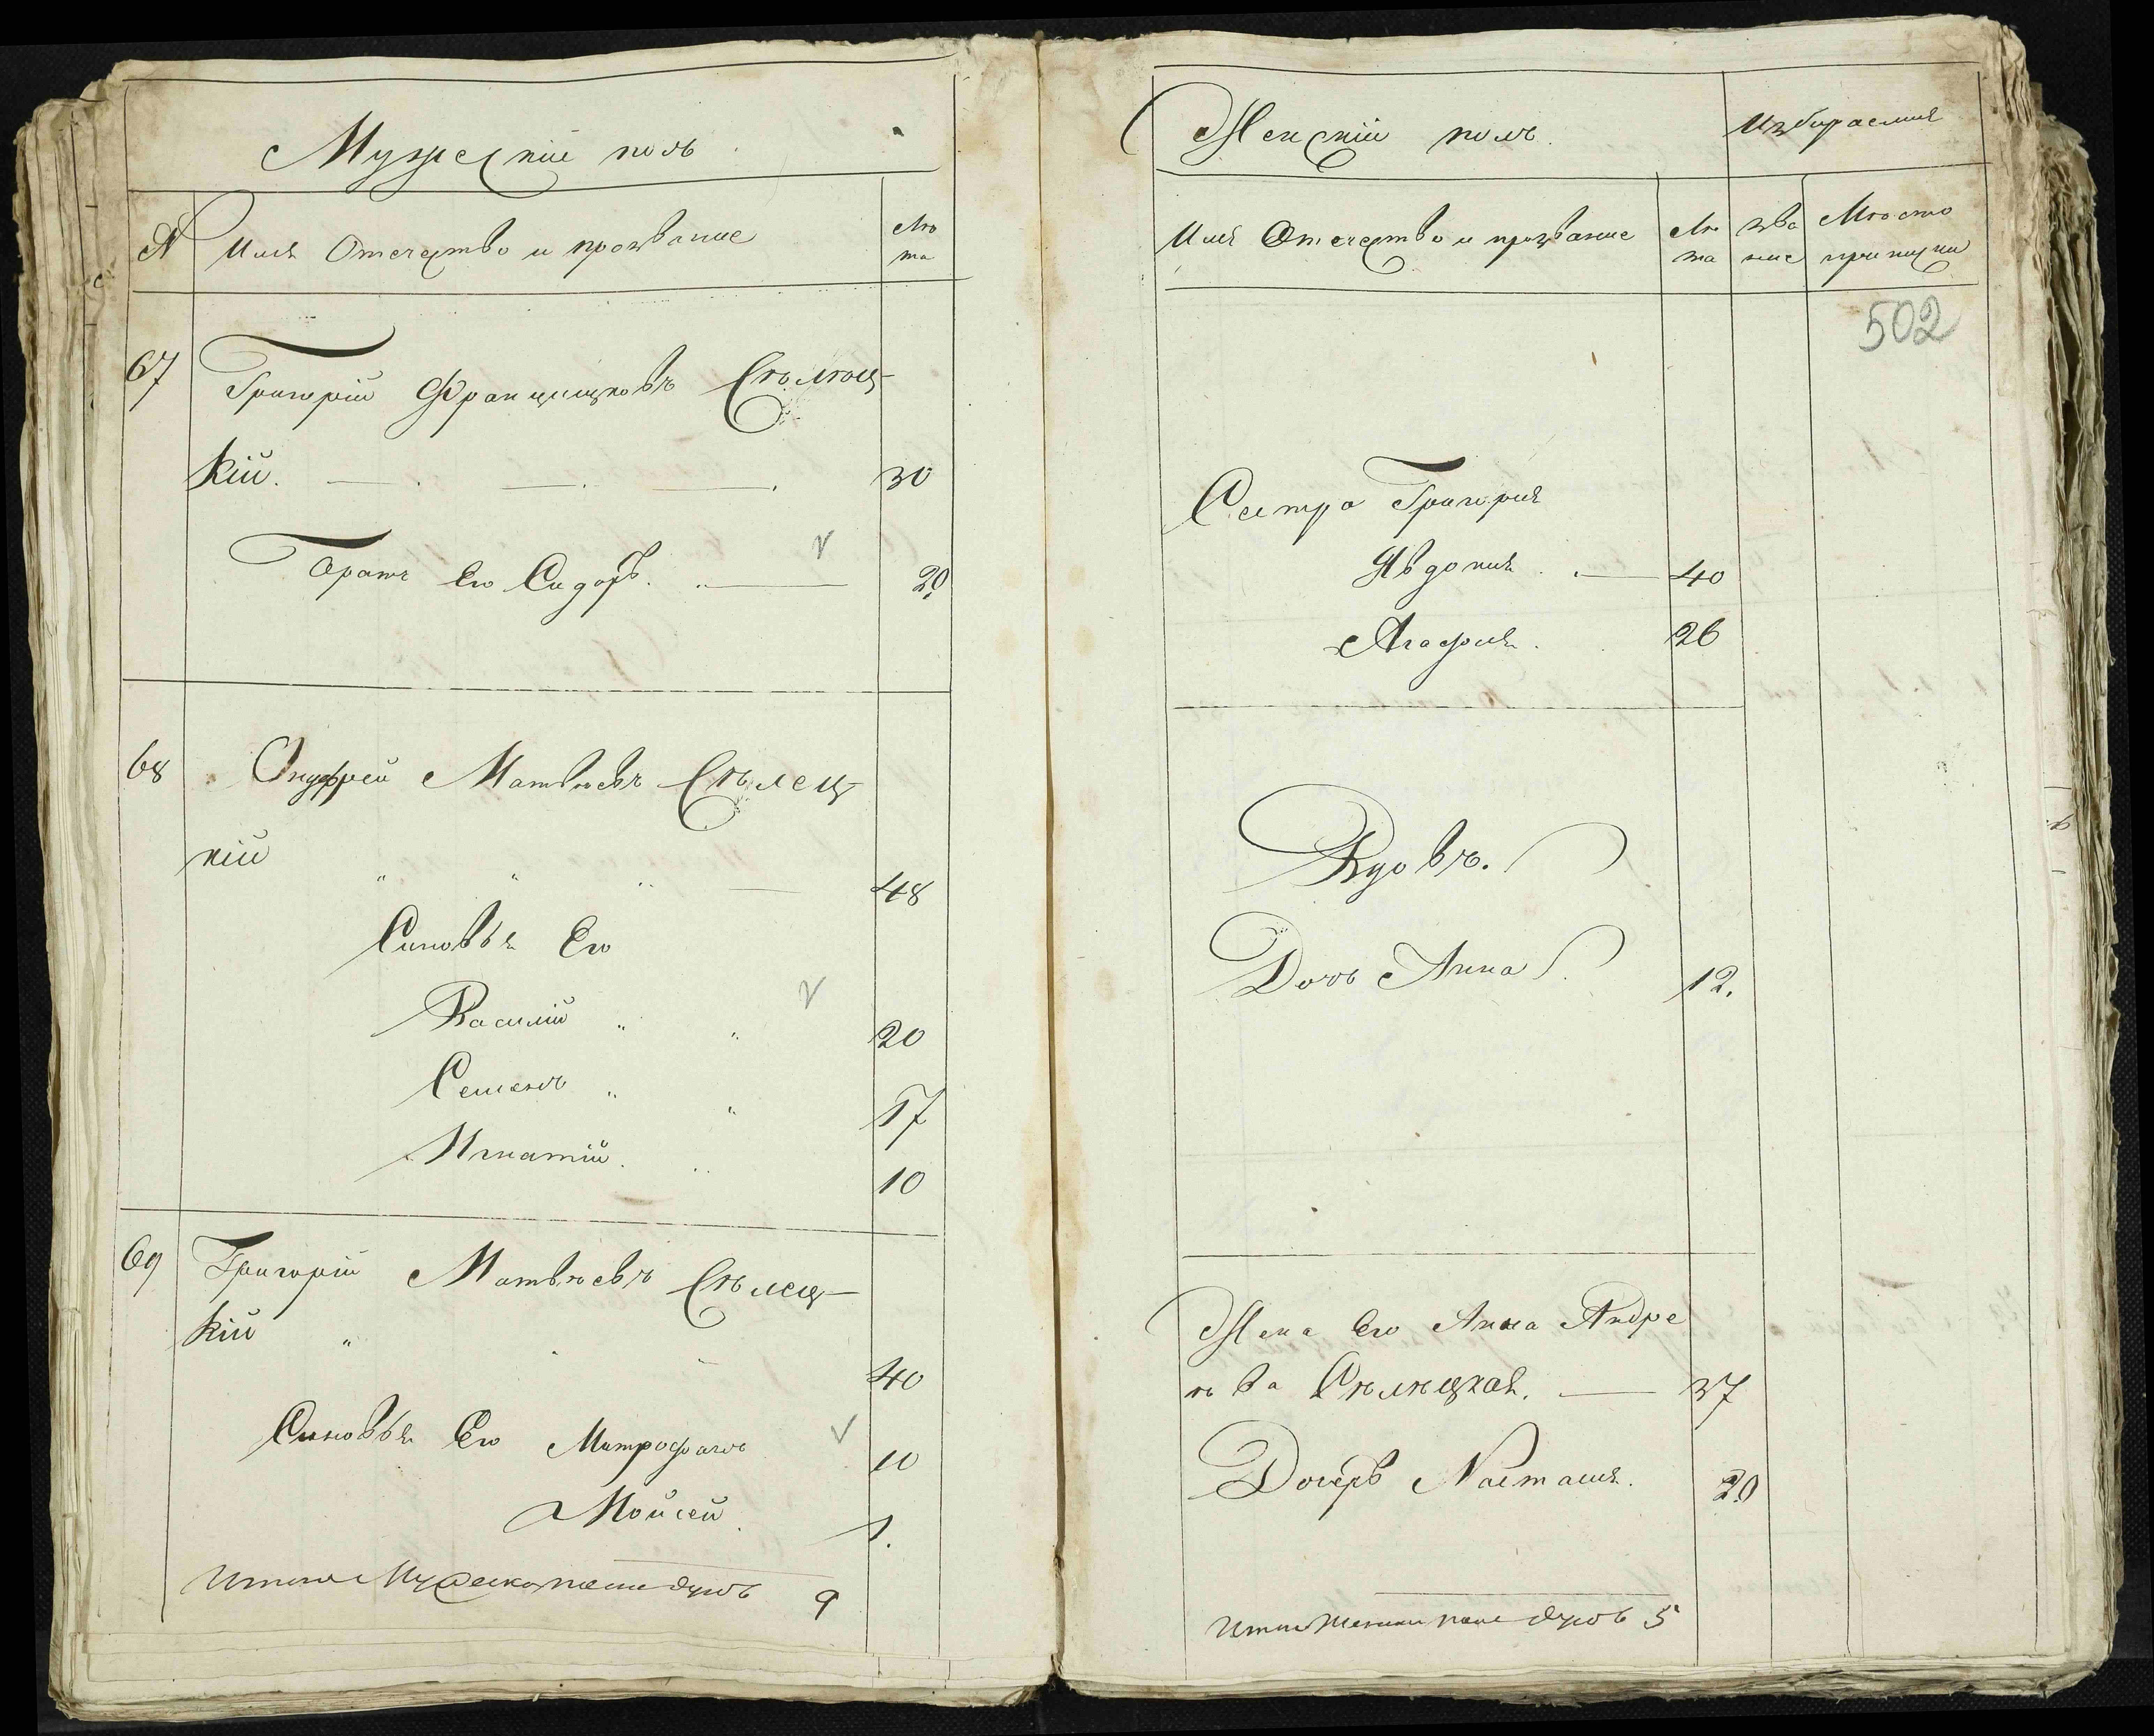 Мужескій полъ
№ Имя Отечество и прозвание Лѣ
та
67 Григорій Францишковъ Сѣлѣц-
кій. 30
Братъ Его Сидоръ. 20
68 Онуфрей Матвѣевъ Сѣлец-
кій 48
Синовья Его
Василій 20
Семенъ 17
Игнатій. 10
69 Григорій Матвѣевъ Сѣлец-
кій 40
Синовья Его Митрофанъ 10
Мойсей 1.
Итого Мужеска пола душъ 9
Женскій полъ. Избираемия
Имя Отечество и прозвание Лѣ
та зва
ние Мѣсто
приписки
502
Сестра Григория
Явдокия 40
Агафия. 26
Вдовъ.
Дочь Анна 12.
Жена Его Анна Андре
ѣва Сѣлѣцкая. 37
Дочерь Настасия. 20
Итого Женска пола душъ 5